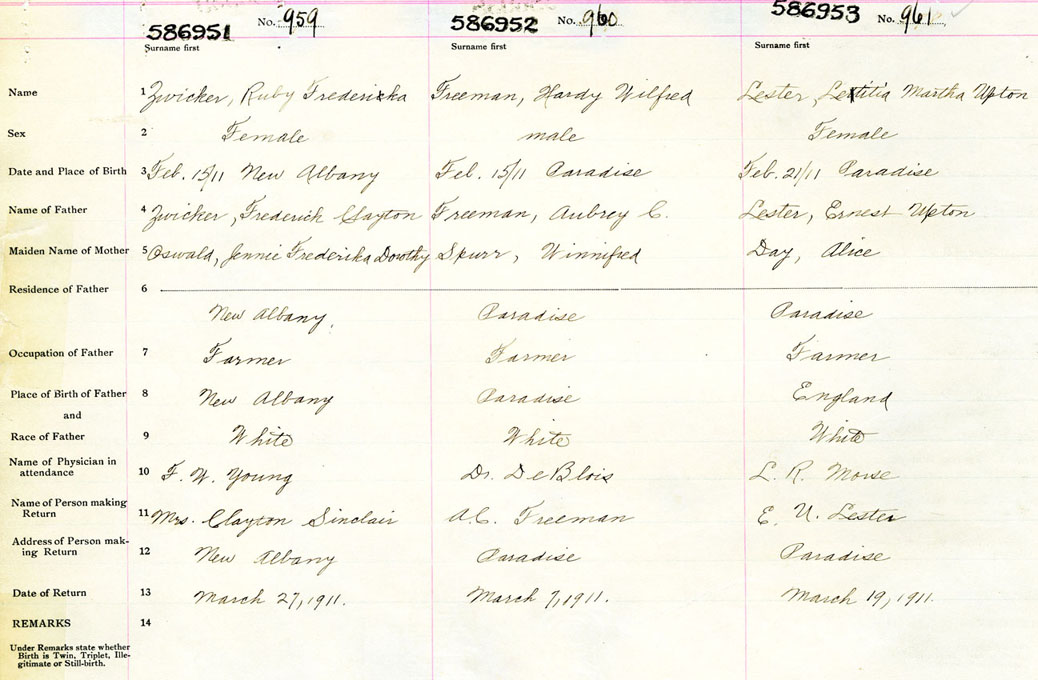 586951 No. 959 586952 No. 960 586953 No. 961
Surname first Surname first Surname first
Name 1 Zwicker, Ruby Frederika Freeman, Hardy Wilfred Lester, Letitia Martha Upton
Sex 2 Female male Female
Date and Place of Birth 3 Feb. 15/11 New Albany Feb. 15/11 Paradise Feb. 21/11 Paradise
Name of Father 4 Zwicker, Frederick Clayton Freeman, Aubrey C. Lester, Ernest Upton
Maiden Name of Mother 5 Oswald, Jennie Frederika Dorothy Spurr, Winnifred Day, Alice
Residence of Father 6
New Albany. Paradise Paradise
Occupation of Father 7 Farmer Farmer Farmer
Place of Birth of Father 8 New Albany Paradise England
and
Race of Father 9 White White White
Name of Physician in
attendance 10 F. W. Young Dr. DeBlois L. R. Morse
Name of Person making
Return 11 Mrs. Clayton Sinclair A.C. Freeman E. U. Lester
Address of Person mak-
ing Return 12 New Albany Paradise Paradise
Date of Return 13 March 27, 1911. March 7, 1911. March 19, 1911.
REMARKS 14
Under Remarks state whether
Birth is Twin, Triplet, Ille-
gitimate or Still-birth.